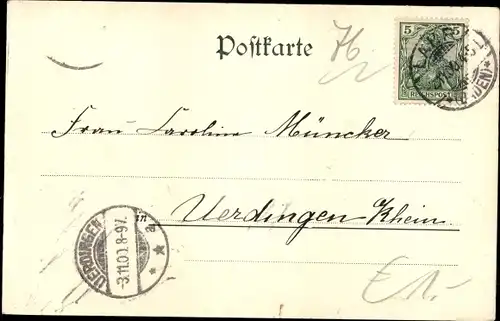 Postkarte
76
5 5
REICHSPOST
(BADEN)
Frau Caroline Müncker
in
Uerdingen Rhein
UERDINGEN
-3.11.00.8-9V.
a